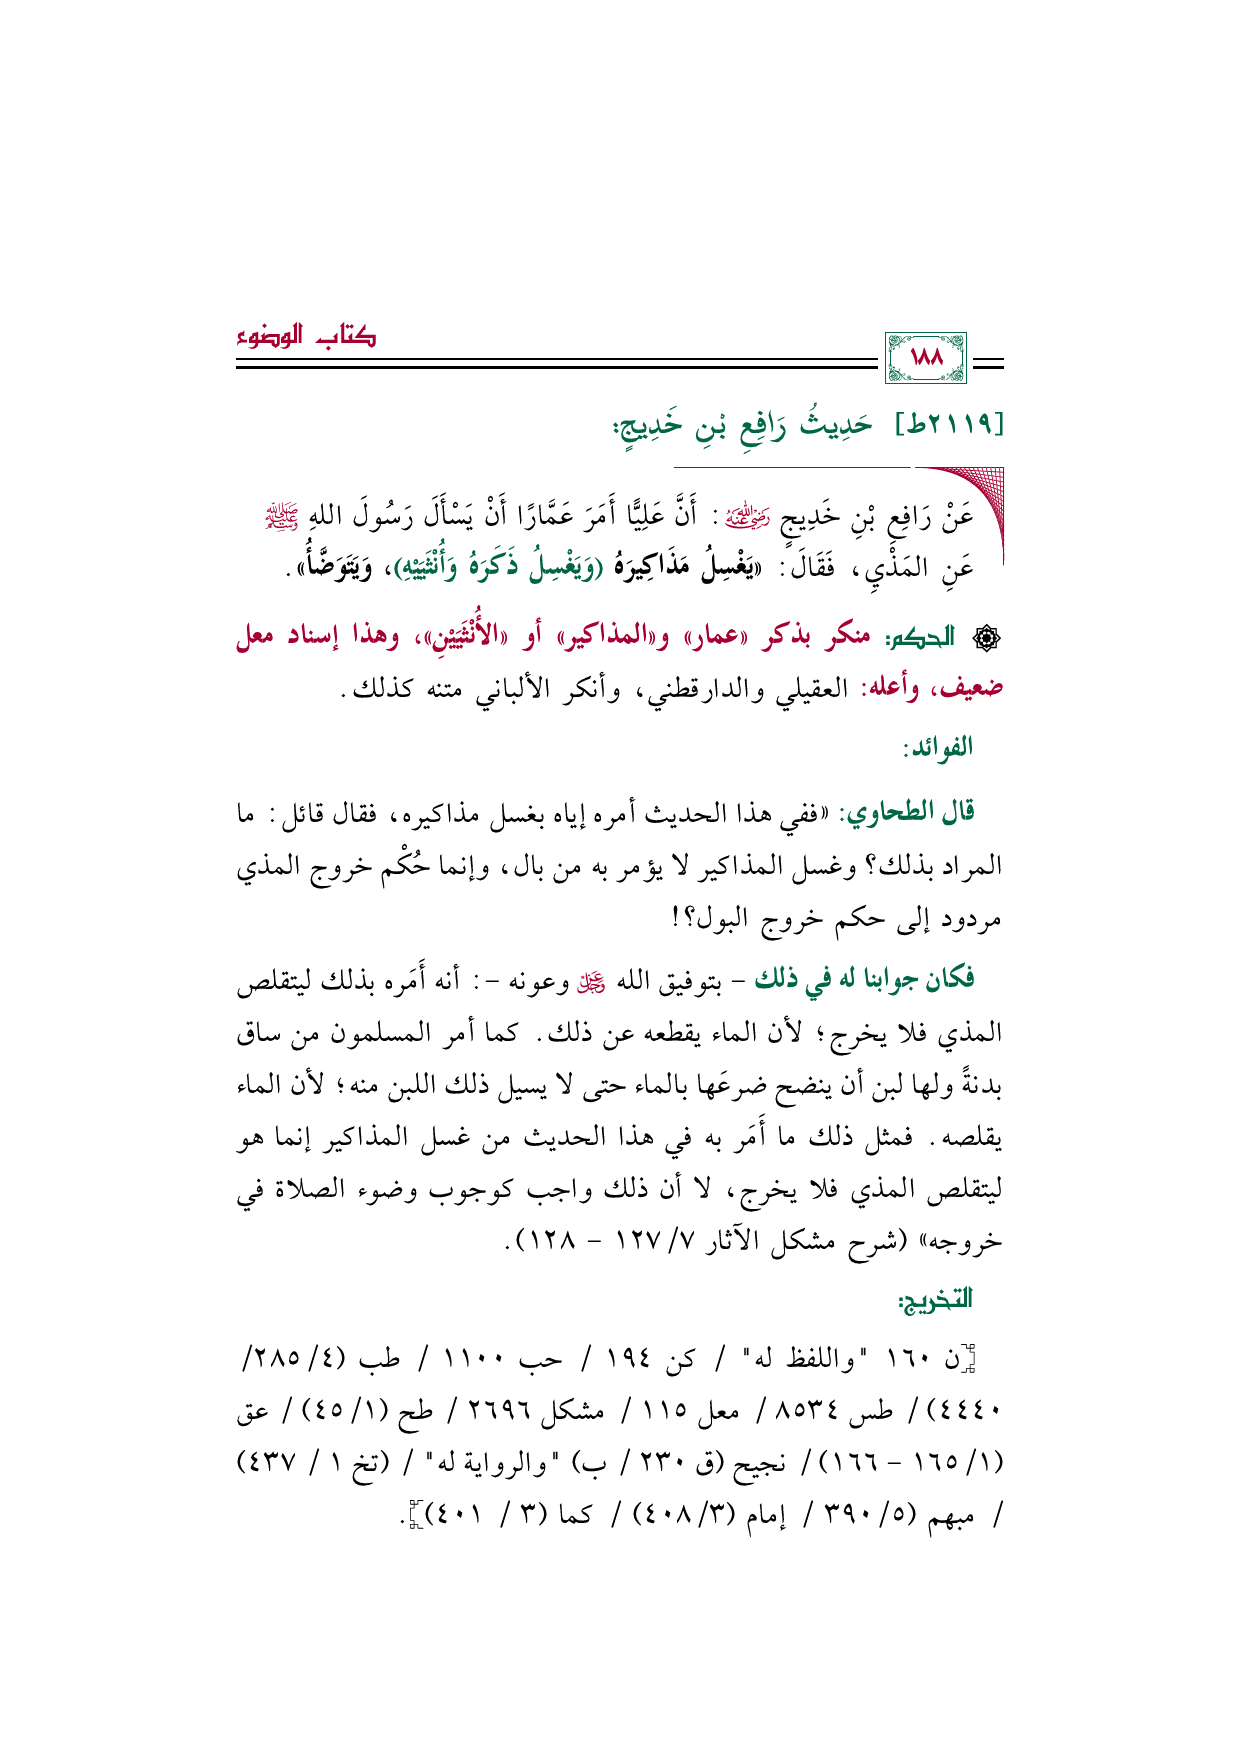 كتاب الوضوء
١٨٨
[٢١١٩ط] حَدِيثُ رَافِعِ بْنِ خَدِيجٍ:
عَنْ رَافِعِ بْنِ خَدِيجٍ رضي الله عنه: أَنَّ عَلِيًّا أَمَرَ عَمَّارًا أَنْ يَسْأَلَ رَسُولَ اللهِ ﷺ
عَنِ المَذْيِ، فَقَالَ: «يَغْسِلُ مَذَاكِيرَهُ (وَيَغْسِلُ ذَكَرَهُ وَأُنْثَيَيْهِ)، وَيَتَوَضَّأُ».
الحكم: منكر بذكر «عمار» و«المذاكير» أو «الأُنْثَيَيْنِ»، وهذا إسناد معل
ضعيف، وأعله: العقيلي والدارقطني، وأنكر الألباني متنه كذلك.
الفوائد:
قال الطحاوي: «ففي هذا الحديث أمره إياه بغسل مذاكيره، فقال قائل: ما
المراد بذلك؟ وغسل المذاكير لا يؤمر به من بال، وإنما حُكْم خروج المذي
مردود إلى حكم خروج البول؟!
فكان جوابنا له في ذلك – بتوفيق الله عز وجل وعونه –: أنه أَمَره بذلك ليتقلص
المذي فلا يخرج؛ لأن الماء يقطعه عن ذلك. كما أمر المسلمون من ساق
بدنةً ولها لبن أن ينضح ضرعَها بالماء حتى لا يسيل ذلك اللبن منه؛ لأن الماء
يقلصه. فمثل ذلك ما أَمَر به في هذا الحديث من غسل المذاكير إنما هو
ليتقلص المذي فلا يخرج، لا أن ذلك واجب كوجوب وضوء الصلاة في
خروجه» (شرح مشكل الآثار ٧/ ١٢٧ – ١٢٨).
التخريج:
[ن ١٦٠ "واللفظ له" / كن ١٩٤ / حب ١١٠٠ / طب (٤/ ٢٨٥/
٤٤٤٠) / طس ٨٥٣٤ / معل ١١٥ / مشكل ٢٦٩٦ / طح (١/ ٤٥) / عق
(١/ ١٦٥ – ١٦٦) / نجيح (ق ٢٣٠ / ب) "والرواية له" / (تخ ١ / ٤٣٧)
/ مبهم (٥/ ٣٩٠ / إمام (٣/ ٤٠٨) / كما (٣ / ٤٠١)].